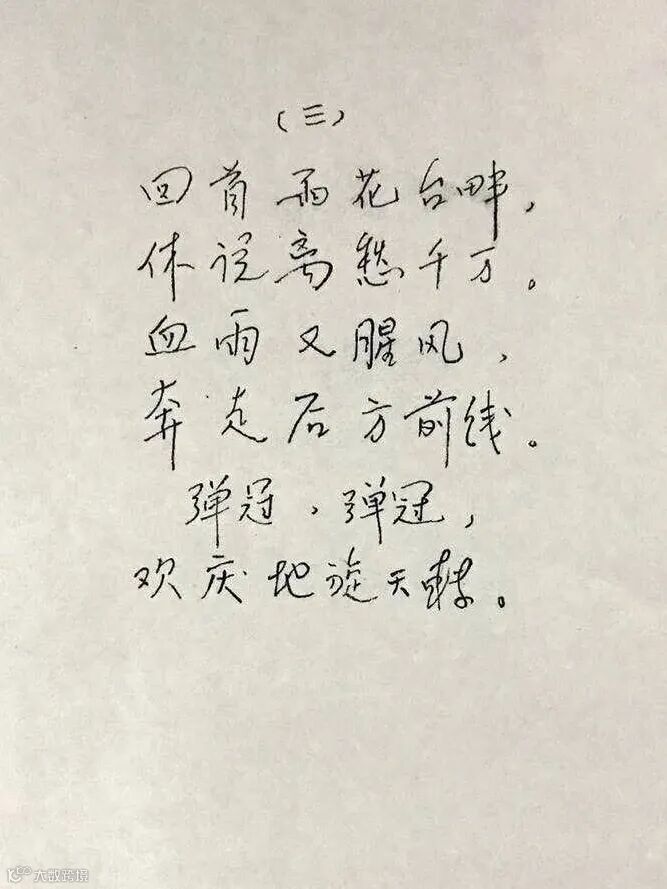 （三）
回首雨花台畔，
休说离愁千万。
血雨又腥风，
奔走后方前线。
弹冠，弹冠，
欢庆地旋天转。
大数跨境